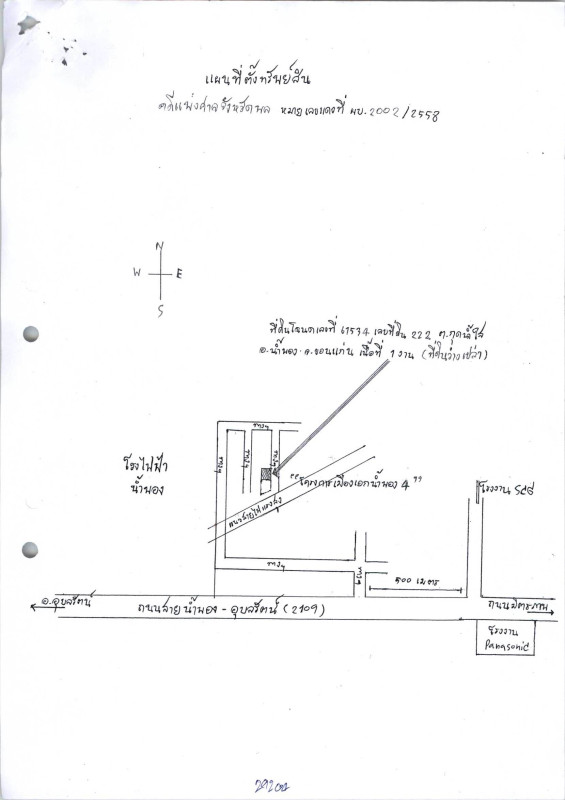 แผนที่ตั้งทรัพย์สิน
คดีแพ่งศาลจังหวัดพล หมายเลขแดงที่ ผบ.2002/2558
N
W E
S
ที่ดินโฉนดเลขที่ 61534 เลขที่ดิน 222 ต.กุดน้ำใส
อ.น้ำพอง จ.ขอนแก่น เนื้อที่ 1 งาน (ที่ดินว่างเปล่า)
โรงไฟฟ้า
น้ำพอง
"โครงการเมืองเอกน้ำพอง 4"
แนวสายไฟแรงสูง
โรงงาน
500 เมตร
อ.อุบลรัตน์
ถนนสายน้ำพอง - อุบลรัตน์ (2109)
ถนนมิตรภาพ
โรงงาน
Panasonic